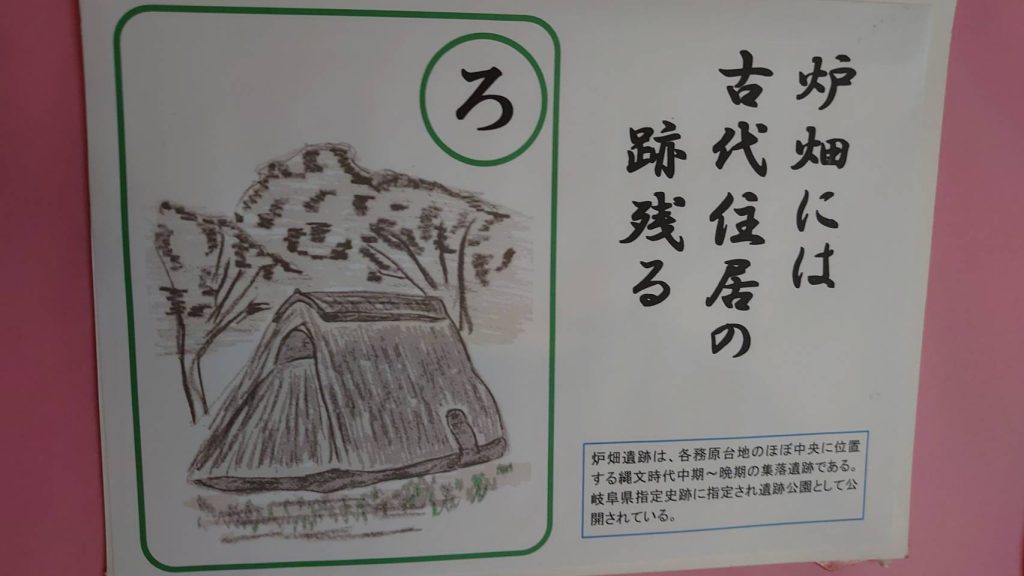 ろ
炉畑には
古代住居の
跡残る
炉畑遺跡は、各務原台地のほぼ中央に位置
する縄文時代中期～晩期の集落遺跡である。
岐阜県指定史跡に指定され遺跡公園として公
開されている。